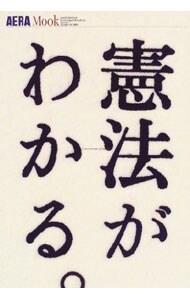 AERA Mook
憲法が
わかる。